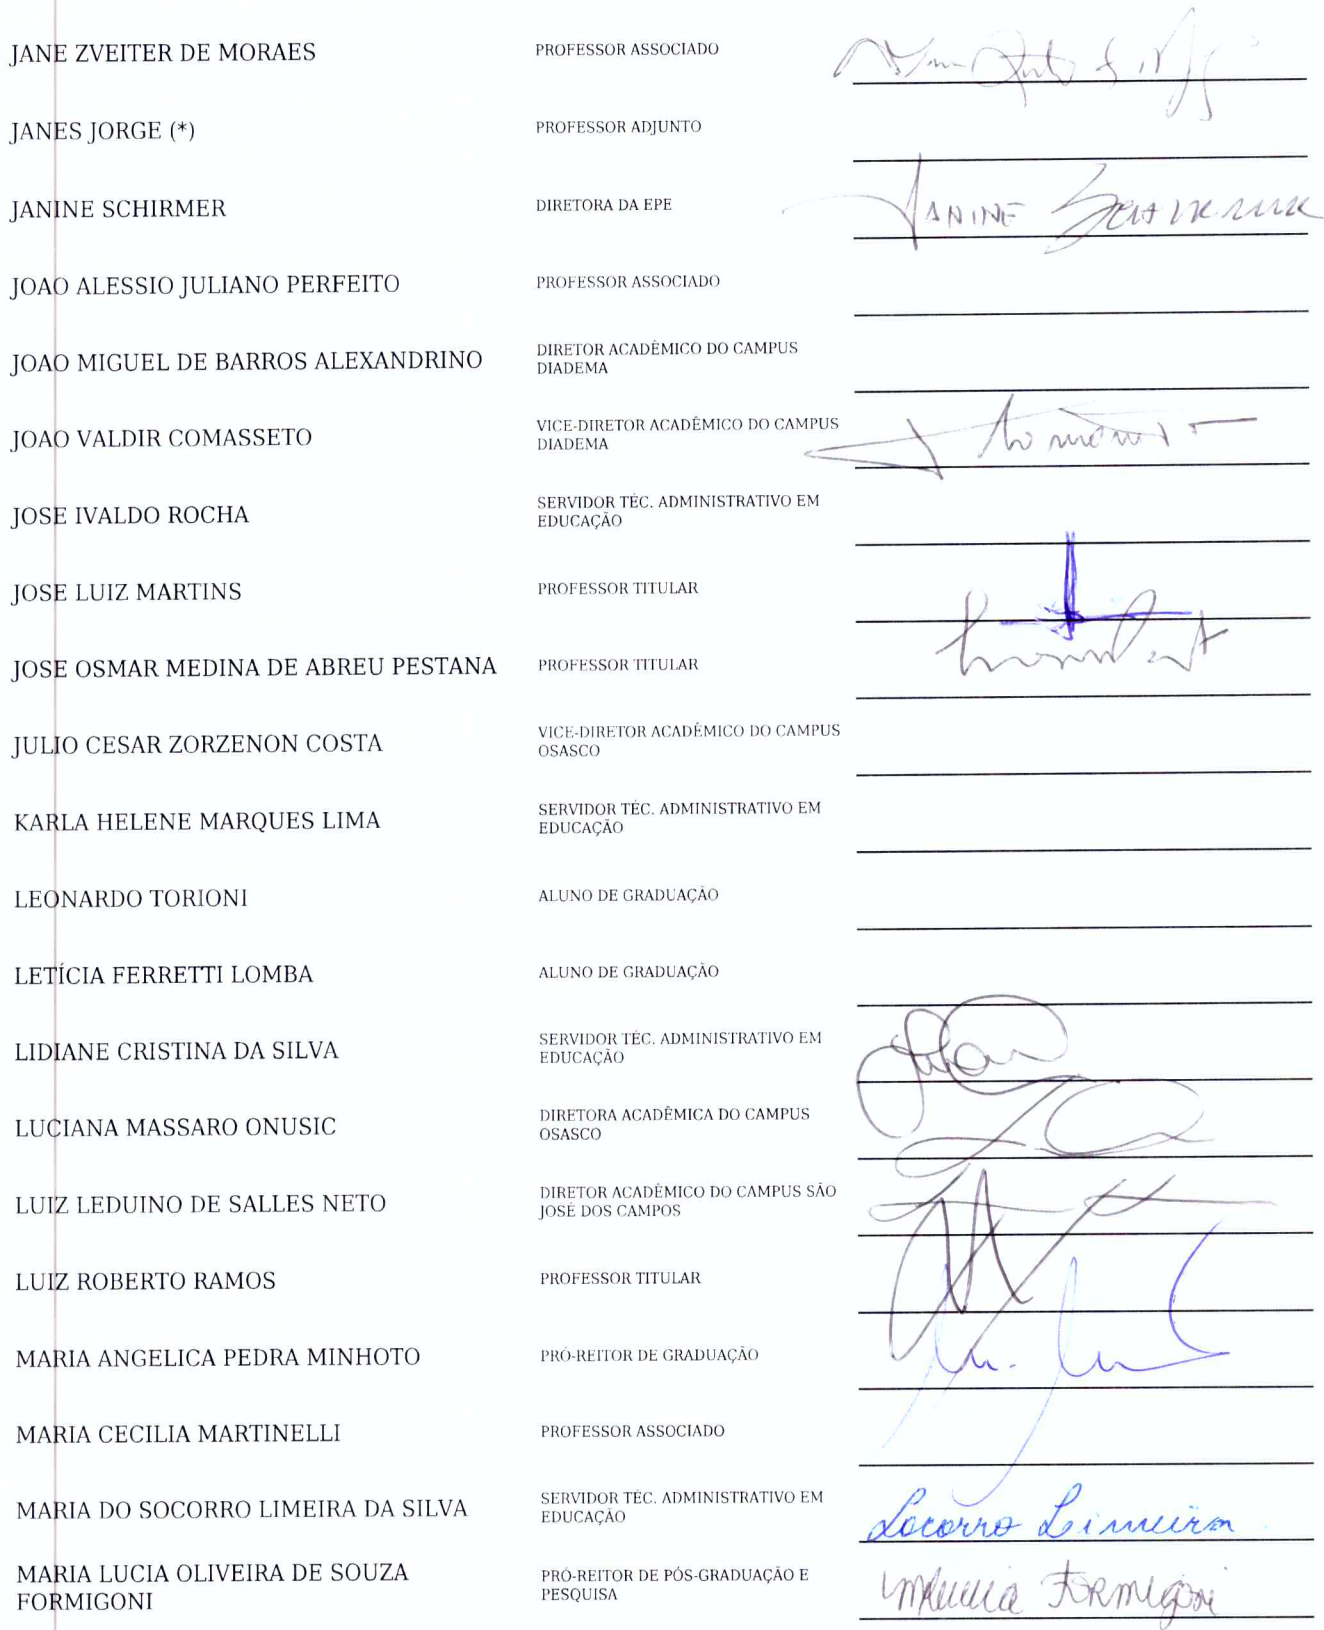 JANE ZVEITER DE MORAES PROFESSOR ASSOCIADO
JANES JORGE (*) PROFESSOR ADJUNTO
JANINE SCHIRMER DIRETORA DA EPE JANINE SCHIRMER
JOAO ALESSIO JULIANO PERFEITO PROFESSOR ASSOCIADO
JOAO MIGUEL DE BARROS ALEXANDRINO DIRETOR ACADÊMICO DO CAMPUS
DIADEMA
JOAO VALDIR COMASSETO VICE-DIRETOR ACADÊMICO DO CAMPUS
DIADEMA
JOSE IVALDO ROCHA SERVIDOR TÉC. ADMINISTRATIVO EM
EDUCAÇÃO
JOSE LUIZ MARTINS PROFESSOR TITULAR
JOSE OSMAR MEDINA DE ABREU PESTANA PROFESSOR TITULAR
JULIO CESAR ZORZENON COSTA VICE-DIRETOR ACADÊMICO DO CAMPUS
OSASCO
KARLA HELENE MARQUES LIMA SERVIDOR TÉC. ADMINISTRATIVO EM
EDUCAÇÃO
LEONARDO TORIONI ALUNO DE GRADUAÇÃO
LETÍCIA FERRETTI LOMBA ALUNO DE GRADUAÇÃO
LIDIANE CRISTINA DA SILVA SERVIDOR TÉC. ADMINISTRATIVO EM
EDUCAÇÃO
LUCIANA MASSARO ONUSIC DIRETORA ACADÊMICA DO CAMPUS
OSASCO
LUIZ LEDUINO DE SALLES NETO DIRETOR ACADÊMICO DO CAMPUS SÃO
JOSÉ DOS CAMPOS
LUIZ ROBERTO RAMOS PROFESSOR TITULAR
MARIA ANGELICA PEDRA MINHOTO PRÓ-REITOR DE GRADUAÇÃO
MARIA CECILIA MARTINELLI PROFESSOR ASSOCIADO
MARIA DO SOCORRO LIMEIRA DA SILVA SERVIDOR TÉC. ADMINISTRATIVO EM
EDUCAÇÃO Socorro Limeira
MARIA LUCIA OLIVEIRA DE SOUZA
FORMIGONI PRÓ-REITOR DE PÓS-GRADUAÇÃO E
PESQUISA Formigoni